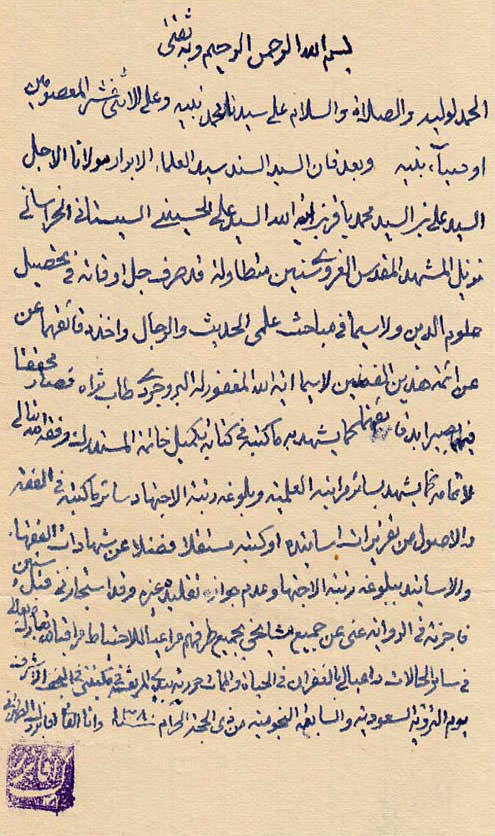 بسم الله الرحمن الرحيم وبه ثقتي
الحمد لوليه والصلاة والسلام على سيدنا محمد نبيه وعلى الاثني عشر المعصومين
اوصياء نبيه وبعد فان السيد السند سيد العلماء الابرار مولانا الاجل
السيد علي بن السيد محمد باقر بن آية الله السيد علي الحسيني السيستاني الخراساني
نزيل المشهد المقدس الغروي سنين متطاولة قد صرف جل اوقاته في تحصيل
علوم الدين ولاسيما في مباحث علمي الحديث والرجال واخذ دقائقهما عن
عن ائمة هذين الفنين لاسيما آية الله المغفور له البروجردي طاب ثراه فصار محققا
فيهما بصيرا بدقائقهما كما يشهد به ما كتبه في كتابه تكميل خاتمة المستدرك وفقه الله تعالى
لاتمامه كما يشهد بسائر مراتبه العلمية وبلوغه رتبة الاجتهاد سائر ما كتبه في الفقه
والاصول من تقريرات اساتيده او كتبه مستقلا فضلا عن شهادات الفقهاء
والاساتيد ببلوغه رتبة الاجتهاد وعدم جواز تقليده غيره وقد استجازني قبل سنين
فاجزته في الرواية عني عن جميع مشايخي بجميع طرقهم مراعيا للاحتياط مراقبا لله تعالى
في سائر الحالات داعيا لي الغفران في الحياة والممات حررته بيدي المرتعشة في مكتبتي في النجف الاشرف
يوم التروية السعودية والسابعة النجومية من ذي الحجة الحرام ١٣٨٠ وانا الفاني